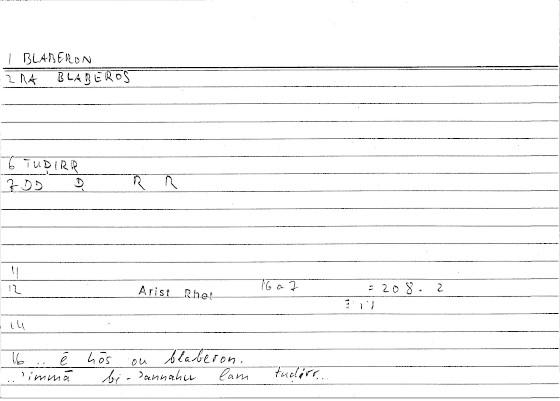 1 BLABERON
2 RA BLABEROS
6 TUḌIRR
7 DD Ḍ R R
11
12 Arist Rhet 16 a 7 = 208. 2
14
16 .. ē hōs ou blaberon.
..'immā bi-'annahu lam tuḍirr..